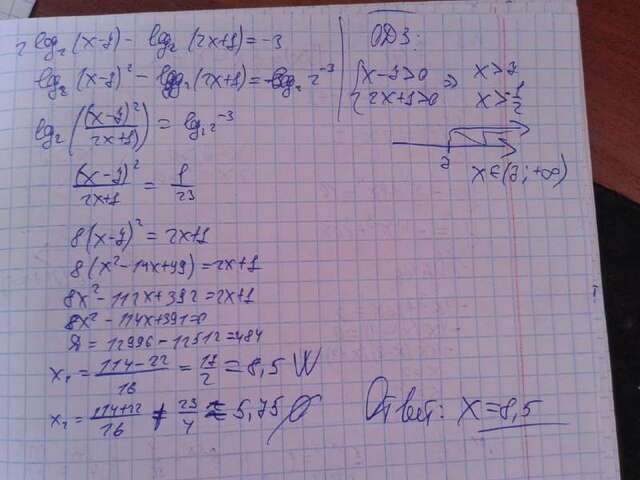 2 log₂ (x-7) - log₂ (2x+1) = -3
log₂ (x-7)² - log₂ (2x+1) = log₂ 2⁻³
log₂ ((x-7)²/(2x+1)) = log₂ 2⁻³
(x-7)²/(2x+1) = 1/2³
8(x-7)² = 2x+1
8(x²-14x+49) = 2x+1
8x²-112x+392=2x+1
8x²-114x+391=0
Д = 12996-12512=484
x₁ = (114-22)/16 = 17/2 = 8,5
x₂ = (114+22)/16 = 23/4 = 5,75 ∅
ОДЗ:
{x-7>0 => x>7
{2x+1>0 x>-1/2
7
x∈(7;+∞)
Ответ: x=8,5